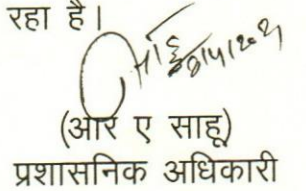 रहा है।
(आर ए साहू)
प्रशासनिक अधिकारी